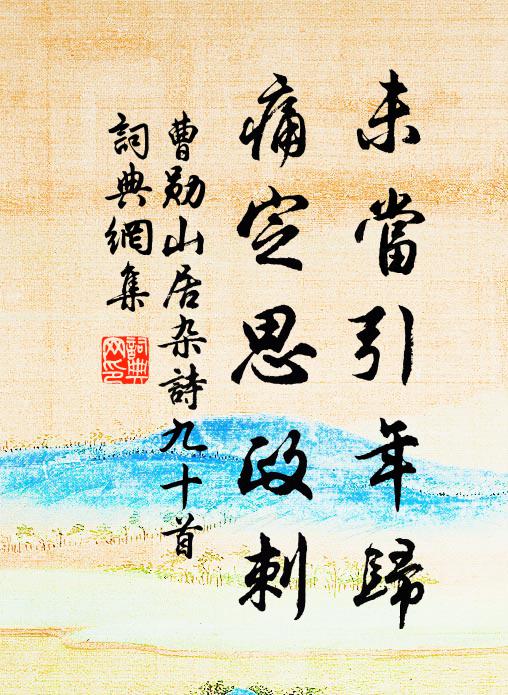 未當引年歸
痛定思政刺
曹勛山居杂詩九十首
詞典網集
詞典
网印